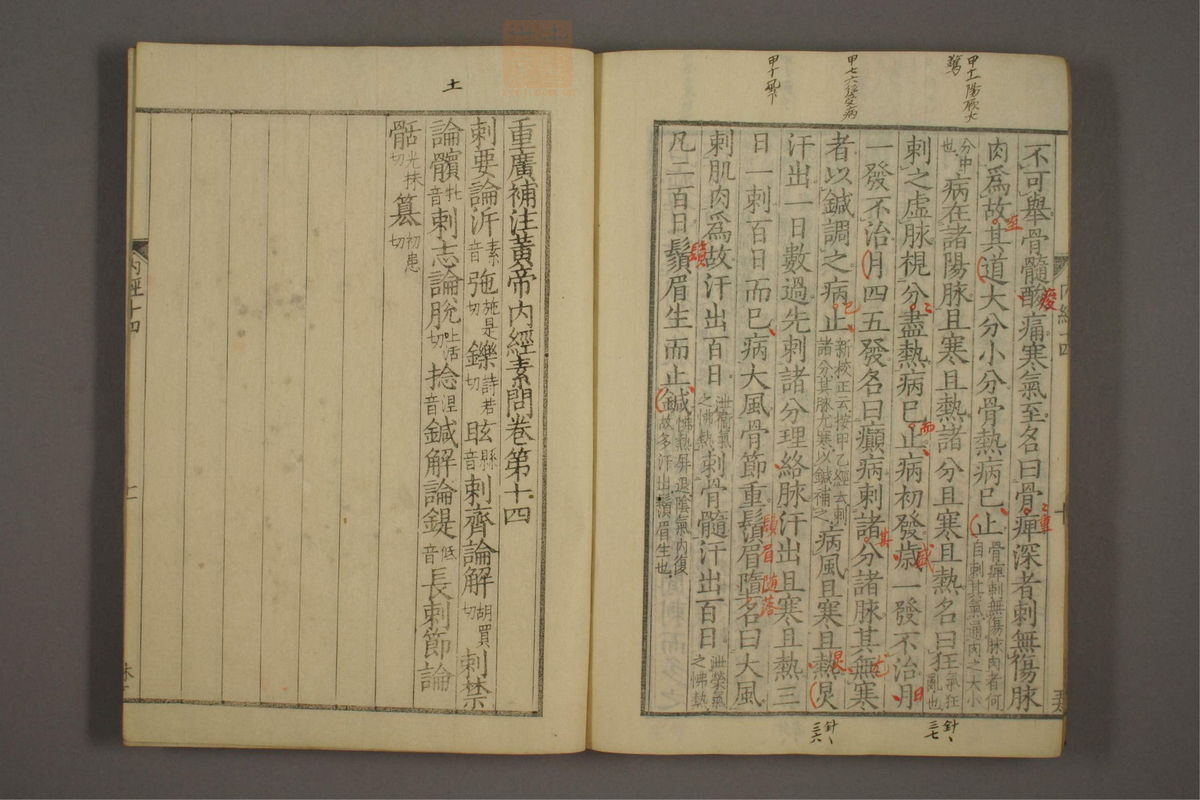 甲十一陽厥大
驚
甲七六經受病
甲十風下
不可舉骨髓酸痛寒氣至名曰骨痺深者刺無傷脉
肉爲故其道大分小分骨熱病已止骨痺刺無傷脉肉者何自刺其氣通肉之大小
分中也病在諸陽脉且寒且熱諸分且寒且熱名曰狂氣狂亂也
刺之虛脉視分盡熱病已止病初發歲一發不治月
一發不治月四五發名曰癲病刺諸分諸脉其無寒
者以鍼調之病止新校正云按甲乙經云刺諸分其脉尤寒以鍼補之病風且寒且熱炅
汗出一日數過先刺諸分理絡脉汗出且寒且熱三
日一刺百日而已病大風骨節重鬚眉墮名曰大風
刺肌肉爲故汗出百日泄衛氣之怫熱刺骨髓汗出百日泄榮氣之怫熱
凡二百日鬚眉生而止鍼怫熱屏退陰氣内復故多汗出鬚眉生也
痠
重
至
而
歲
日
其
已
鬚眉墮落
鬚
針三七
針三六
内經十四
十
土
重廣補注黃帝内經素問卷第十四
刺要論泝音素㢮施是切鑠詩若切眩音縣刺齊論解胡買切刺禁
論髕音牝刺志論脫吐活切捻音涅鍼解論鍉音低長刺節論
骷光抹切篡初患切
内經十四